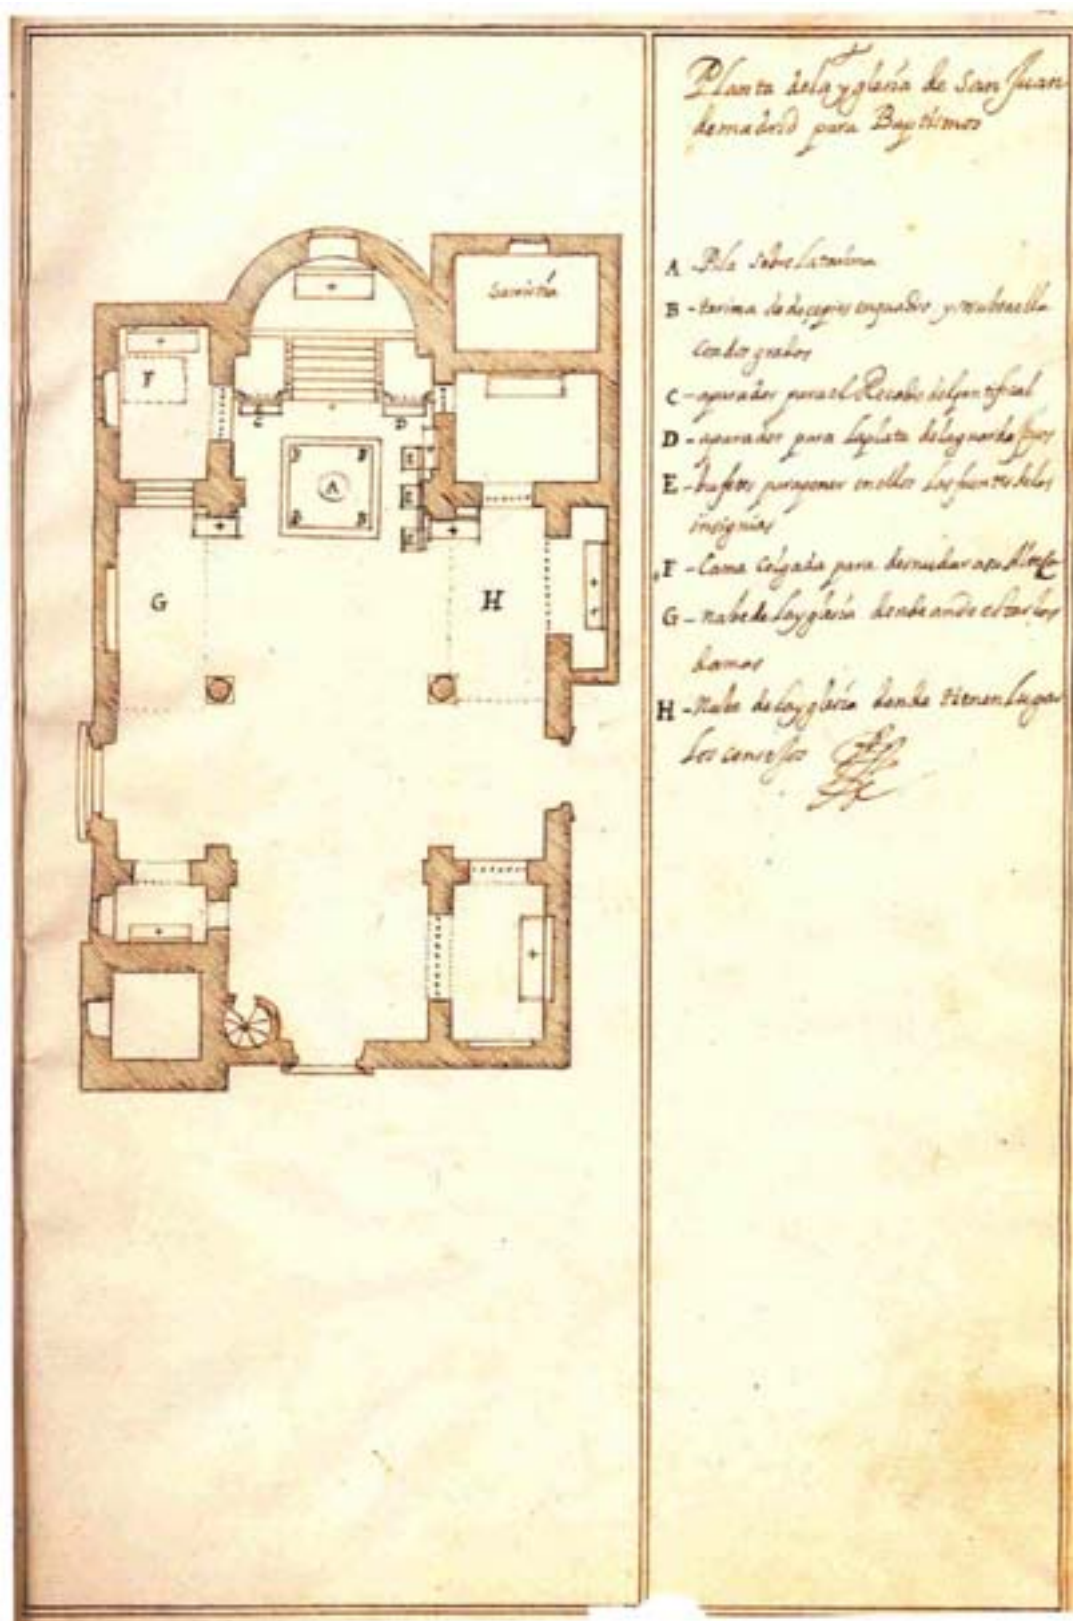 Sacristia
F
C
D
B
B
A
E
E
B
B
E
G
H
Planta dela yglesia de San Juan
demadrid para Baptismos
A - Pila sobre la tarima
B - tarima de doce pies enquadro y
con dos grados
C - aparador para el Recado del pontifical
D - aparador para la plata dela guarda
E - bufetes para poner en ellos las fuentes delas
insignias
F - Cama colgada para desnudar a su Alteza
G - nabe de la yglesia donde an de estar las
damas
H - Nabe de la yglesia donde tienen Lugar
los consejos